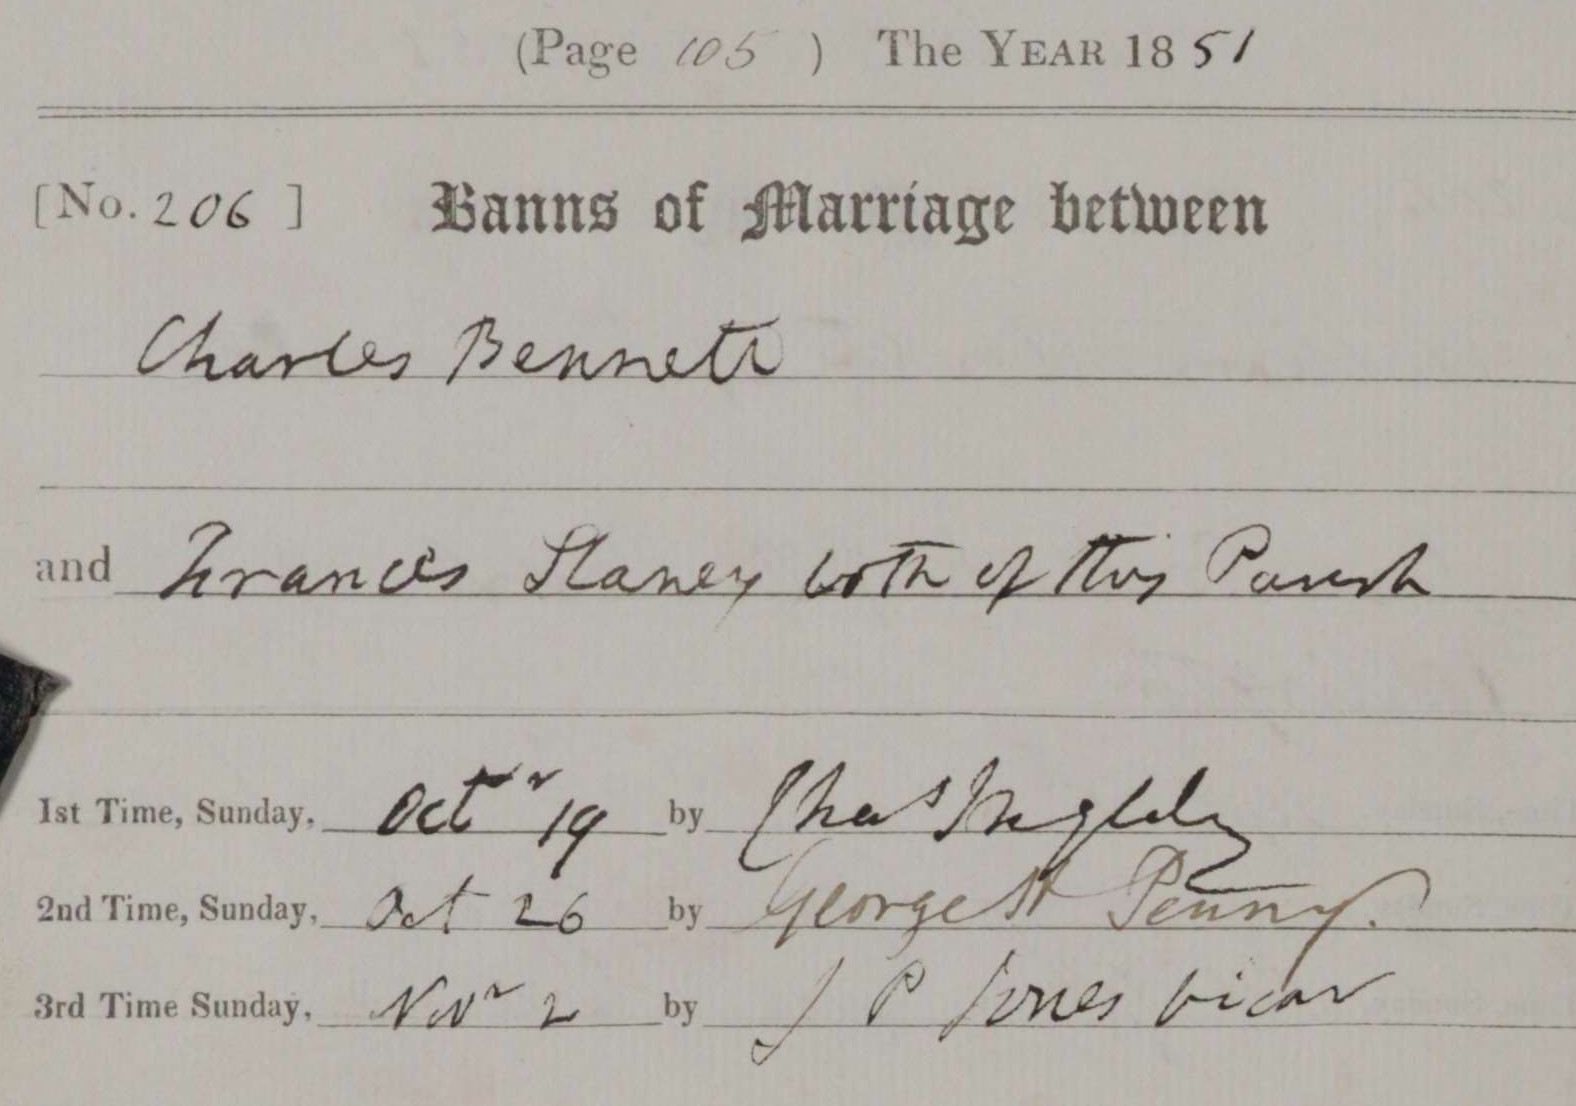 (Page 105 ) The YEAR 1851
[No. 206 ] Banns of Marriage between
Charles Bennett
and Frances Slaney both of this Parish
1st Time, Sunday, Octr 19 by Chas
2nd Time, Sunday, Oct 26 by George H Penny.
3rd Time Sunday, Novr 2 by J P Jones Vicar